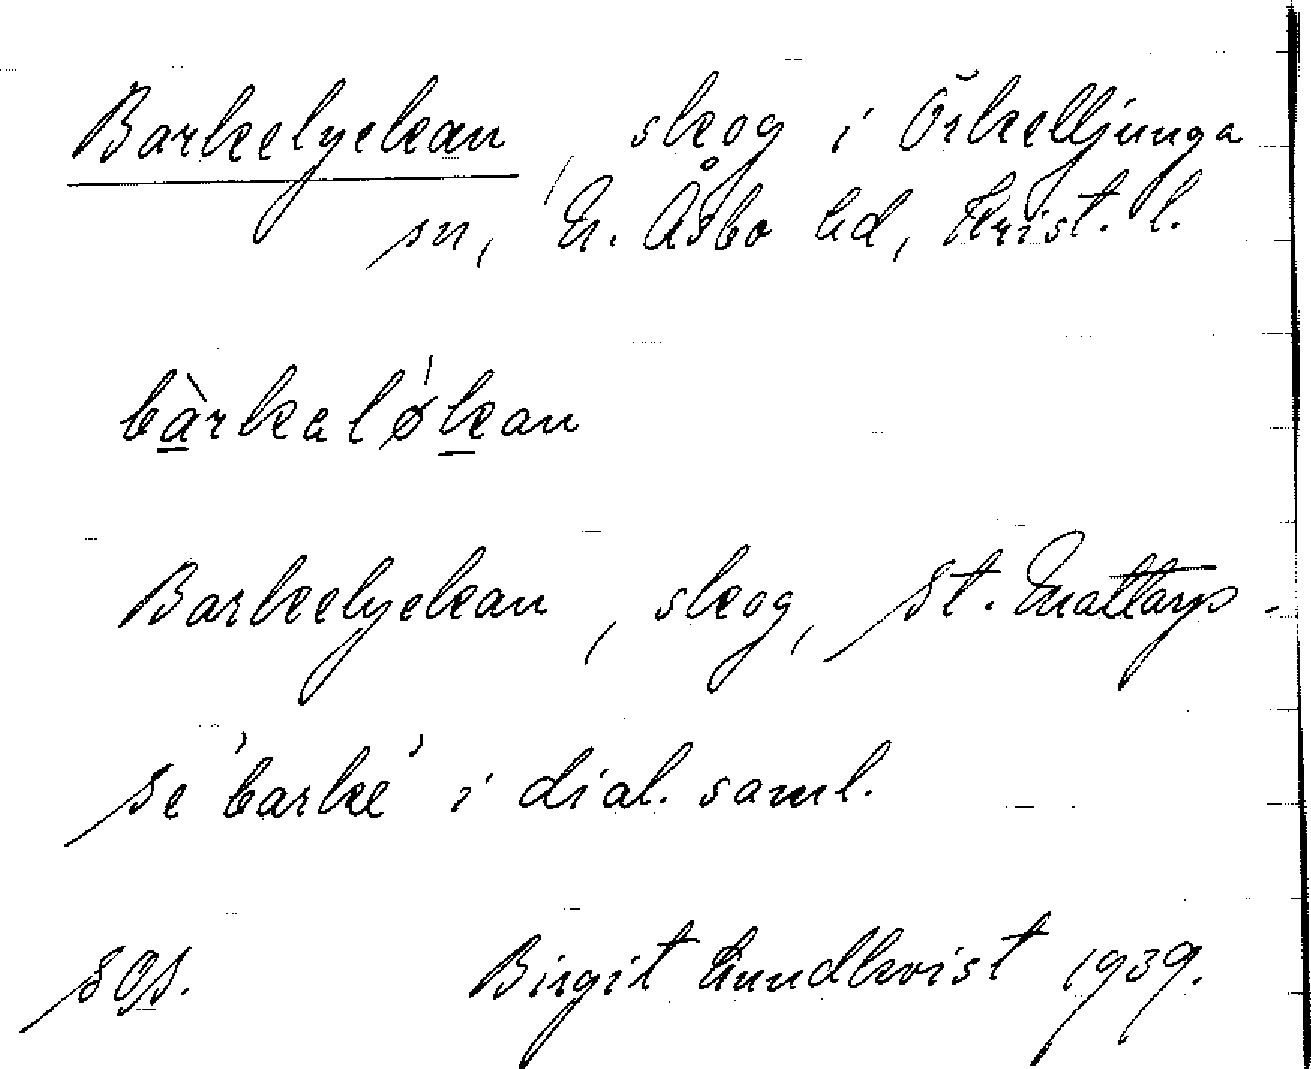 Barkelyckan, skog i Örkelljunga
sn, N. Åsbo hd, Krist. l.
bàrkaløkan
Barkelyckan, skog, St. Mattarp-
se 'barke' i dial. saml.
Birgit Lundkvist 1939.